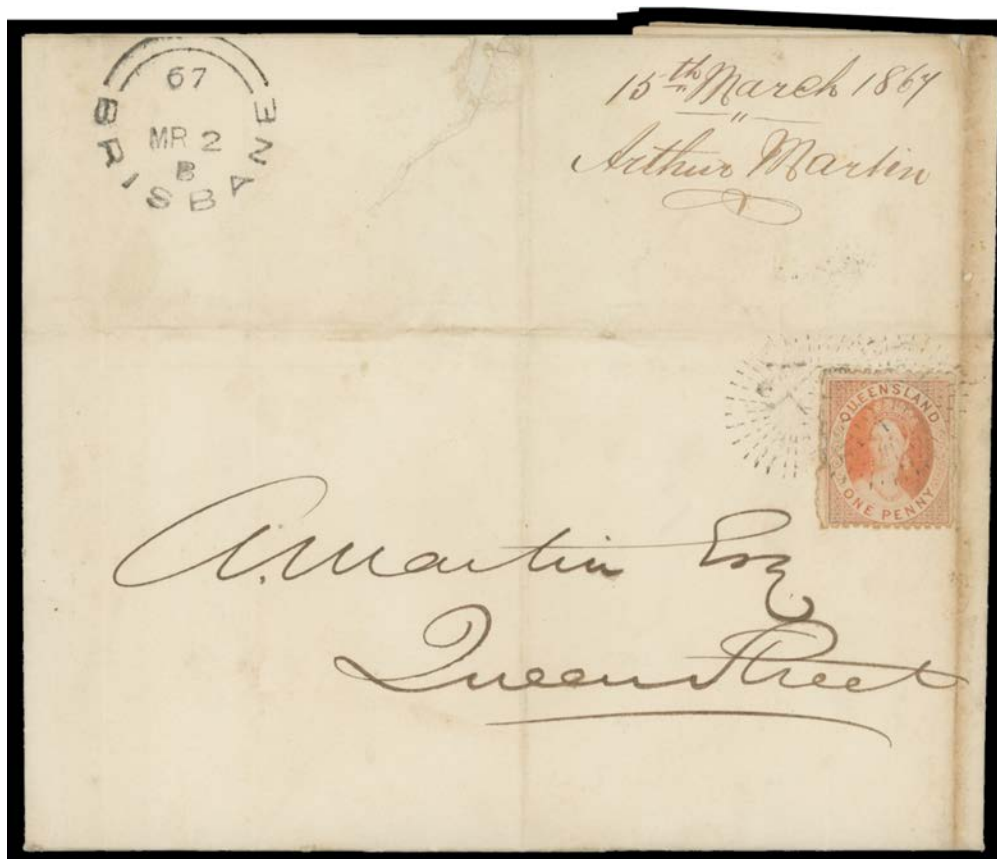 67
MR 2
B
BRISBANE
15th March 1867
"
Arthur Martin
QUEENSLAND
ONE PENNY
A. Martin Esq
Queen Street